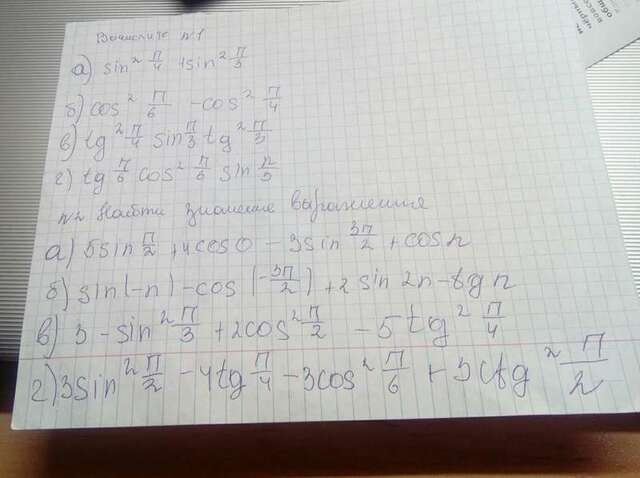 Вычислите n1
а) sin² π/4 + sin² π/3
б) cos² π/6 - cos² π/4
в) tg² π/4 sin π/3 tg² π/3
г) tg π/6 cos² π/6 sin π/3
n2 Найти значение выражения
а) 5sin π/2 + 4cos0 - 3sin 3π/2 + cosπ
б) sin(-π) - cos(-3π/2) + 2sin2π - tgπ
в) 3 - sin² π/3 + 2cos² π/2 - 5tg² π/4
г) 3sin² π/2 - 4tg π/4 - 3cos² π/6 + 3ctg² π/2